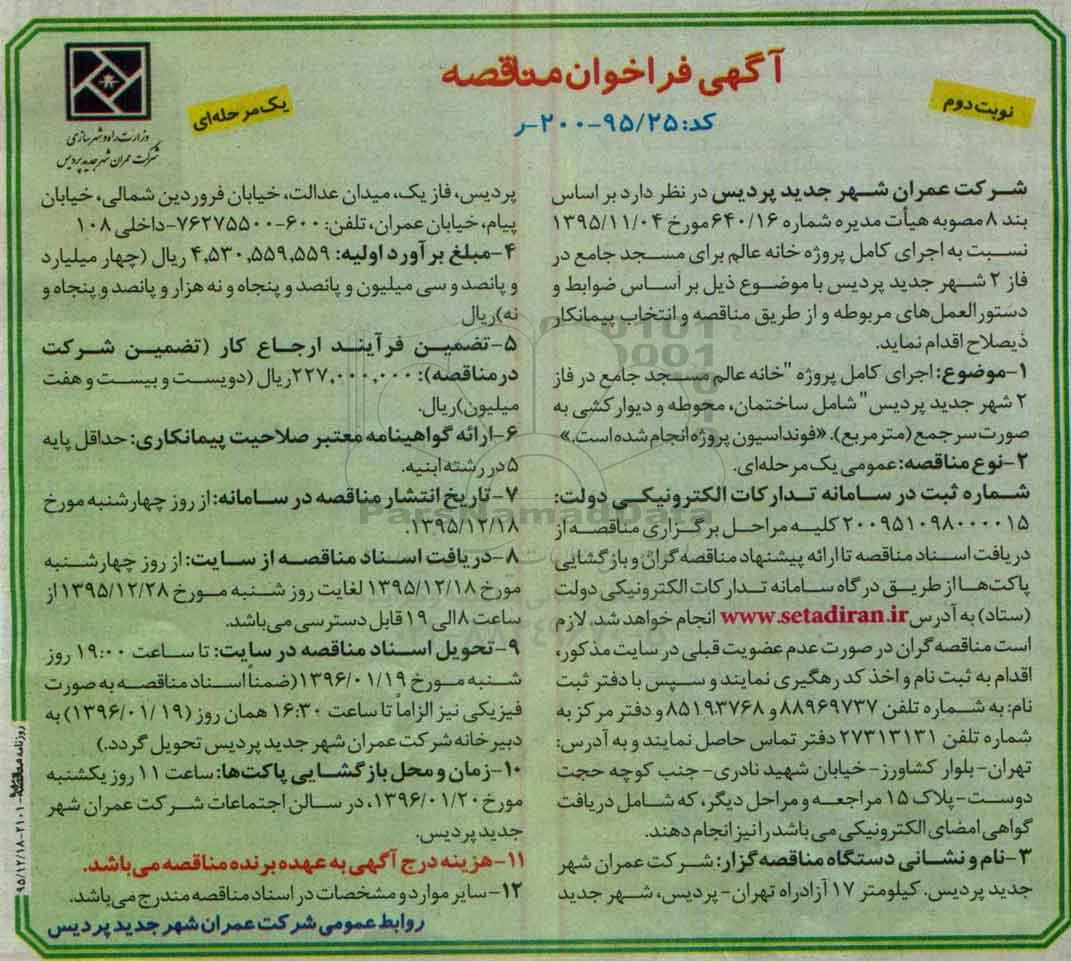 آگهی فراخوان مناقصه
نوبت دوم
یک مرحله‌ای
کد: ۹۵/۲۵-۲۰۰-ر
وزارت راه و شهرسازی
شرکت عمران شهر جدید پردیس
شرکت عمران شهر جدید پردیس در نظر دارد بر اساس
بند ۸ مصوبه هیأت مدیره شماره ۶۴۰/۱۶ مورخ ۱۳۹۵/۱۱/۰۴
نسبت به اجرای کامل پروژه خانه عالم برای مسجد جامع در
فاز ۲ شهر جدید پردیس با موضوع ذیل بر اساس ضوابط و
دستورالعمل‌های مربوطه و از طریق مناقصه و انتخاب پیمانکار
ذیصلاح اقدام نماید.
۱-موضوع: اجرای کامل پروژه "خانه عالم مسجد جامع در فاز
۲ شهر جدید پردیس" شامل ساختمان، محوطه و دیوارکشی به
صورت سرجمع (مترمربع). «فونداسیون پروژه انجام شده است.»
۲-نوع مناقصه: عمومی یک مرحله‌ای.
شماره ثبت در سامانه تدارکات الکترونیکی دولت:
۲۰۰۹۵۱۰۹۸۰۰۰۰۱۵ کلیه مراحل برگزاری مناقصه از
دریافت اسناد مناقصه تا ارائه پیشنهاد مناقصه گران و بازگشایی
پاکت‌ها از طریق درگاه سامانه تدارکات الکترونیکی دولت
(ستاد) به آدرس www.setadiran.ir انجام خواهد شد. لازم
است مناقصه گران در صورت عدم عضویت قبلی در سایت مذکور،
اقدام به ثبت نام و اخذ کد رهگیری نمایند و سپس با دفتر ثبت
نام: به شماره تلفن ۸۸۹۶۹۷۳۷ و ۸۵۱۹۳۷۶۸ و دفتر مرکز به
شماره تلفن ۲۷۳۱۳۱۳۱ دفتر تماس حاصل نمایند و به آدرس:
تهران-بلوار کشاورز-خیابان شهید نادری- جنب کوچه حجت
دوست-پلاک ۱۵ مراجعه و مراحل دیگر، که شامل دریافت
گواهی امضای الکترونیکی می باشد را نیز انجام دهند.
۳-نام و نشانی دستگاه مناقصه گزار: شرکت عمران شهر
جدید پردیس. کیلومتر ۱۷ آزادراه تهران-پردیس، شهر جدید
پردیس، فاز یک، میدان عدالت، خیابان فروردین شمالی، خیابان
پیام، خیابان عمران، تلفن: ۶۰۰-۷۶۲۷۵۵۰۰-داخلی ۱۰۸
۴-مبلغ برآورد اولیه: ۴,۵۳۰,۵۵۹,۵۵۹ ریال (چهار میلیارد
و پانصد و سی میلیون و پانصد و پنجاه و نه هزار و پانصد و پنجاه و
نه) ریال
۵-تضمین فرآیند ارجاع کار (تضمین شرکت
در مناقصه): ۲۲۷,۰۰۰,۰۰۰ ریال (دویست و بیست و هفت
میلیون) ریال.
۶-ارائه گواهینامه معتبر صلاحیت پیمانکاری: حداقل پایه
۵ در رشته ابنیه.
۷-تاریخ انتشار مناقصه در سامانه: از روز چهارشنبه مورخ
۱۳۹۵/۱۲/۱۸.
۸-دریافت اسناد مناقصه از سایت: از روز چهارشنبه
مورخ ۱۳۹۵/۱۲/۱۸ لغایت روز شنبه مورخ ۱۳۹۵/۱۲/۲۸ از
ساعت ۸ الی ۱۹ قابل دسترسی می باشد.
۹-تحویل اسناد مناقصه در سایت: تا ساعت ۱۹:۰۰ روز
شنبه مورخ ۱۳۹۶/۰۱/۱۹ (ضمناً اسناد مناقصه به صورت
فیزیکی نیز الزاماً تا ساعت ۱۶:۳۰ همان روز (۱۳۹۶/۰۱/۱۹) به
دبیرخانه شرکت عمران شهر جدید پردیس تحویل گردد.)
۱۰-زمان و محل بازگشایی پاکت‌ها: ساعت ۱۱ روز یکشنبه
مورخ ۱۳۹۶/۰۱/۲۰، در سالن اجتماعات شرکت عمران شهر
جدید پردیس.
۱۱-هزینه درج آگهی به عهده برنده مناقصه می باشد.
۱۲-سایر موارد و مشخصات در اسناد مناقصه مندرج می باشد.
روابط عمومی شرکت عمران شهر جدید پردیس
روزنامه مناقصه ۲۱۰۱-۹۵/۱۲/۱۸
ParsNamadData